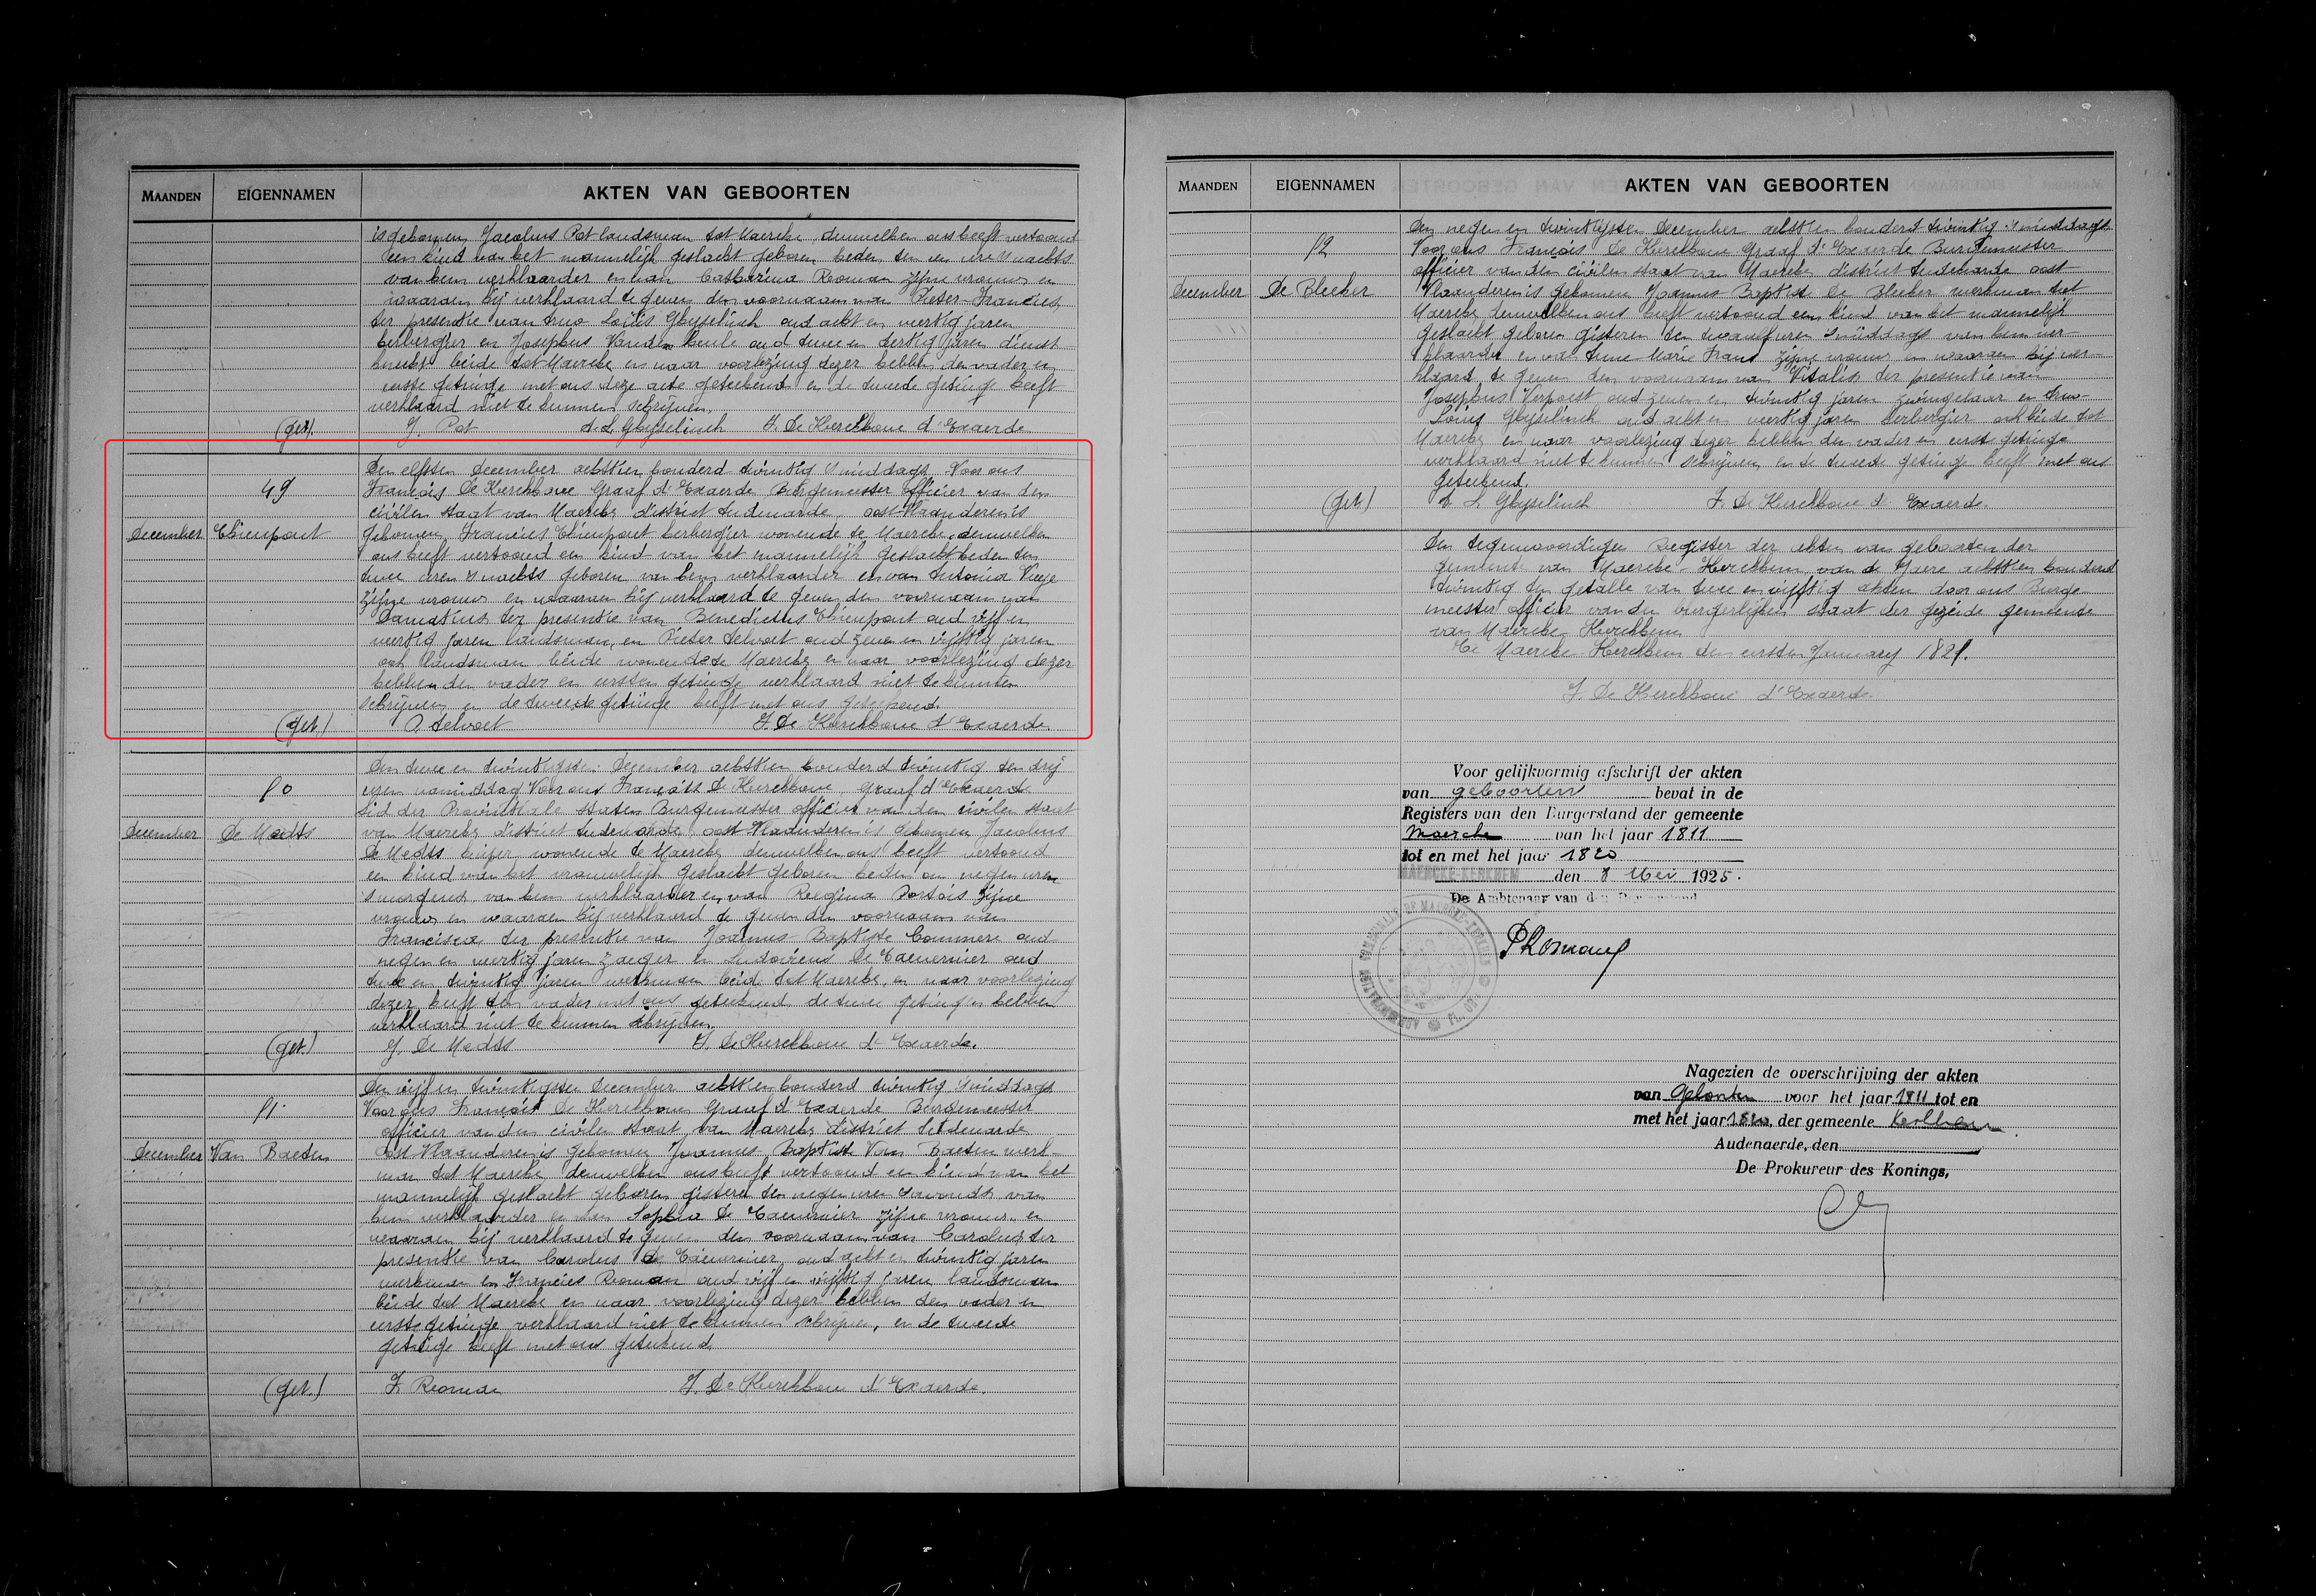 MAANDEN EIGENNAMEN AKTEN VAN GEBOORTEN
is gekomen Jacobus Pot landsman tot Maercke denwelken ons heeft vertoond
een kind van het mannelijk geslacht geboren heden ten een ure s'nachts
van hem verklaarder en van Catharina Rooman zijne vrouw en
waaraan hij verklaard te geven den voornaam van Pieter-Francies
ter presentie van Louis Ghyselinck oud acht en veertig jaren
herbergier en Josephus Vanden heule oud twee en dertig jaren dienst
knecht beide tot Maercke en naar voorlezing dezer hebben den vader en
eerste getuige met ons deze acte geteekend en de tweede getuige heeft
verklaard niet te kunnen schrijven.
(get). J. Pot d. L Ghyselinck F. De Kerckhove d'Exaerde
Den elfsten December achttien honderd twintig s'middags Voor ons
49 François De Kerckhove Graaf d'Exaerde Burgemeester officier van den
civilen staat van Maercke district Audenarde, oost-Vlaanderen is
December Thienpont gekomen Francies Thienpont herbergier wonende te Maercke, denwelken
ons heeft vertoond een kind van het mannelijk geslacht heden ten
twee uren s'nachts geboren van hem verklaarder en van Antonia
zijne vrouw en waaraan hij verklaard te geven den voornaam van
Donatius ter presentie van Benedictus Thienpont oud vijf en
veertig jaren landsman, en Pieter delvoet oud zeven en vijftig jaren
ook landsman beide wonende te Maercke en naar voorlezing dezer
hebben den vader en eersten getuige verklaard niet te kunnen
schrijven en de tweede getuige heeft met ons geteekend.
(get.) P delvoet F. De Kerckhove d'Exaerde.
Den twee en twintigsten December achttien honderd twintig ten drij
50 uren namiddag Voor ons François De Kerckhove, graaf d'Exaerde
Lid der Provintiale staten Burgemeester officier van den civilen staat
December De Medts van Maercke district Audenarde, oost Vlaanderen is gekomen Jacobus
De Medts kuiper wonende te Maercke denwelken ons heeft vertoond
een kind van het vrouwelijk geslacht geboren heden om negen uren
s'morgens van hem verklaarder en van Regina Dortois zijne
vrouw en waaraan hij verklaard te geven den voornaam van
Francisca ter presentie van Joannus Baptiste Commere oud
negen en veertig jaren zaeger en Ludovicus De Taevernier oud
twee en twintig jaren werkman beide tot Maercke, en naar voorlezing
dezer heeft den vader met ons geteekend de twee getuigen hebben
verklaard niet te kunnen schrijven.
(get.) J. De Medts F. De Kerckhove d'Exaerde.
Den vijf en twintigsten December achttien honderd twintig s'middags
51. Voor ons François De Kerckhove Graaf d'Exaerde Burgemeester
officier van den civilen staat van Maercke district Audenarde
December Van Baeten oost Vlaanderen is gekomen Joannus Baptist Van Baeten werk-
man tot Maercke denwelken ons heeft vertoond een kind van het
mannelijk geslacht geboren gisteren ten negen uren s'avonds van
hem verklaarder en van Sophia De Taevernier zijne vrouw en
waaraan hij verklaard te geven den voornaam van Carolus ter
presentie van Carolus De Taevernier oud acht en twintig jaren
werkman en Francies Rooman oud vijf en vijftig jaren landsman
beide tot Maercke en naar voorlezing dezer hebben den vader en
eerste getuige verklaard niet te kunnen schrijven, en de tweede
getuige heeft met ons geteekend
(get.) F. Rooman F. De Kerckhove d'Exaerde.
MAANDEN EIGENNAMEN AKTEN VAN GEBOORTEN
Den negen en twintigsten December achttien honderd twintig s'middags
52 Voor ons François De Kerckhove Graaf d'Exaerde Burgemeester
officier van den civilen staat van Maercke district Audenarde oost
December De Bleeker Vlaanderen is gekomen Joannus Baptiste De Bleeker werkman tot
Maercke denwelken ons heeft vertoond een kind van het mannelijk
geslacht geboren gisteren ten twaalf uren s'middags van hem ver-
klaarder en van Anne Marie Frans zijne vrouw en waaraan hij ver-
klaard te geven den voornaam van Vitalis ter presentie van
Josephus Verpoest oud zeven en twintig jaren zwingelaar en
Louis Ghyselinck oud acht en veertig jaren herbergier, ook beide tot
Maercke en naar voorlezing dezer hebben den vader en eerste getuige
verklaard niet te kunnen schrijven en de tweede getuige heeft met ons
geteekend.
(get) d L Ghyselinck F. De Kerckhove d'Exaerde.
Den tegenwoordigen Register der akten van geboorten der
gemeente van Maercke-Kerckhem van de Jaere achttien honderd
twintig ten getalle van twee en vijftig akten door ons Burge-
meester officier van den burgerlijken staat der gezeide gemeente
van Maercke Kerckhem
Te Maercke-Kerckhem den eersten January 1821.
F. De Kerckhove d'Exaerde.
Voor gelijkvormig afschrift der akten
van geboorten bevat in de
Registers van den Burgerstand der gemeente
Maercke van het jaar 1811
tot en met het jaar 1820
MAERCKE-KERKHEM den 8 Mei 1925.
De Ambtenaar van den Burgerstand
PRomany
Nagezien de overschrijving der akten
van Geboorten voor het jaar 1811 tot en
met het jaar 1820, der gemeente Kerkhem
Audenaerde, den
De Prokureur des Konings,